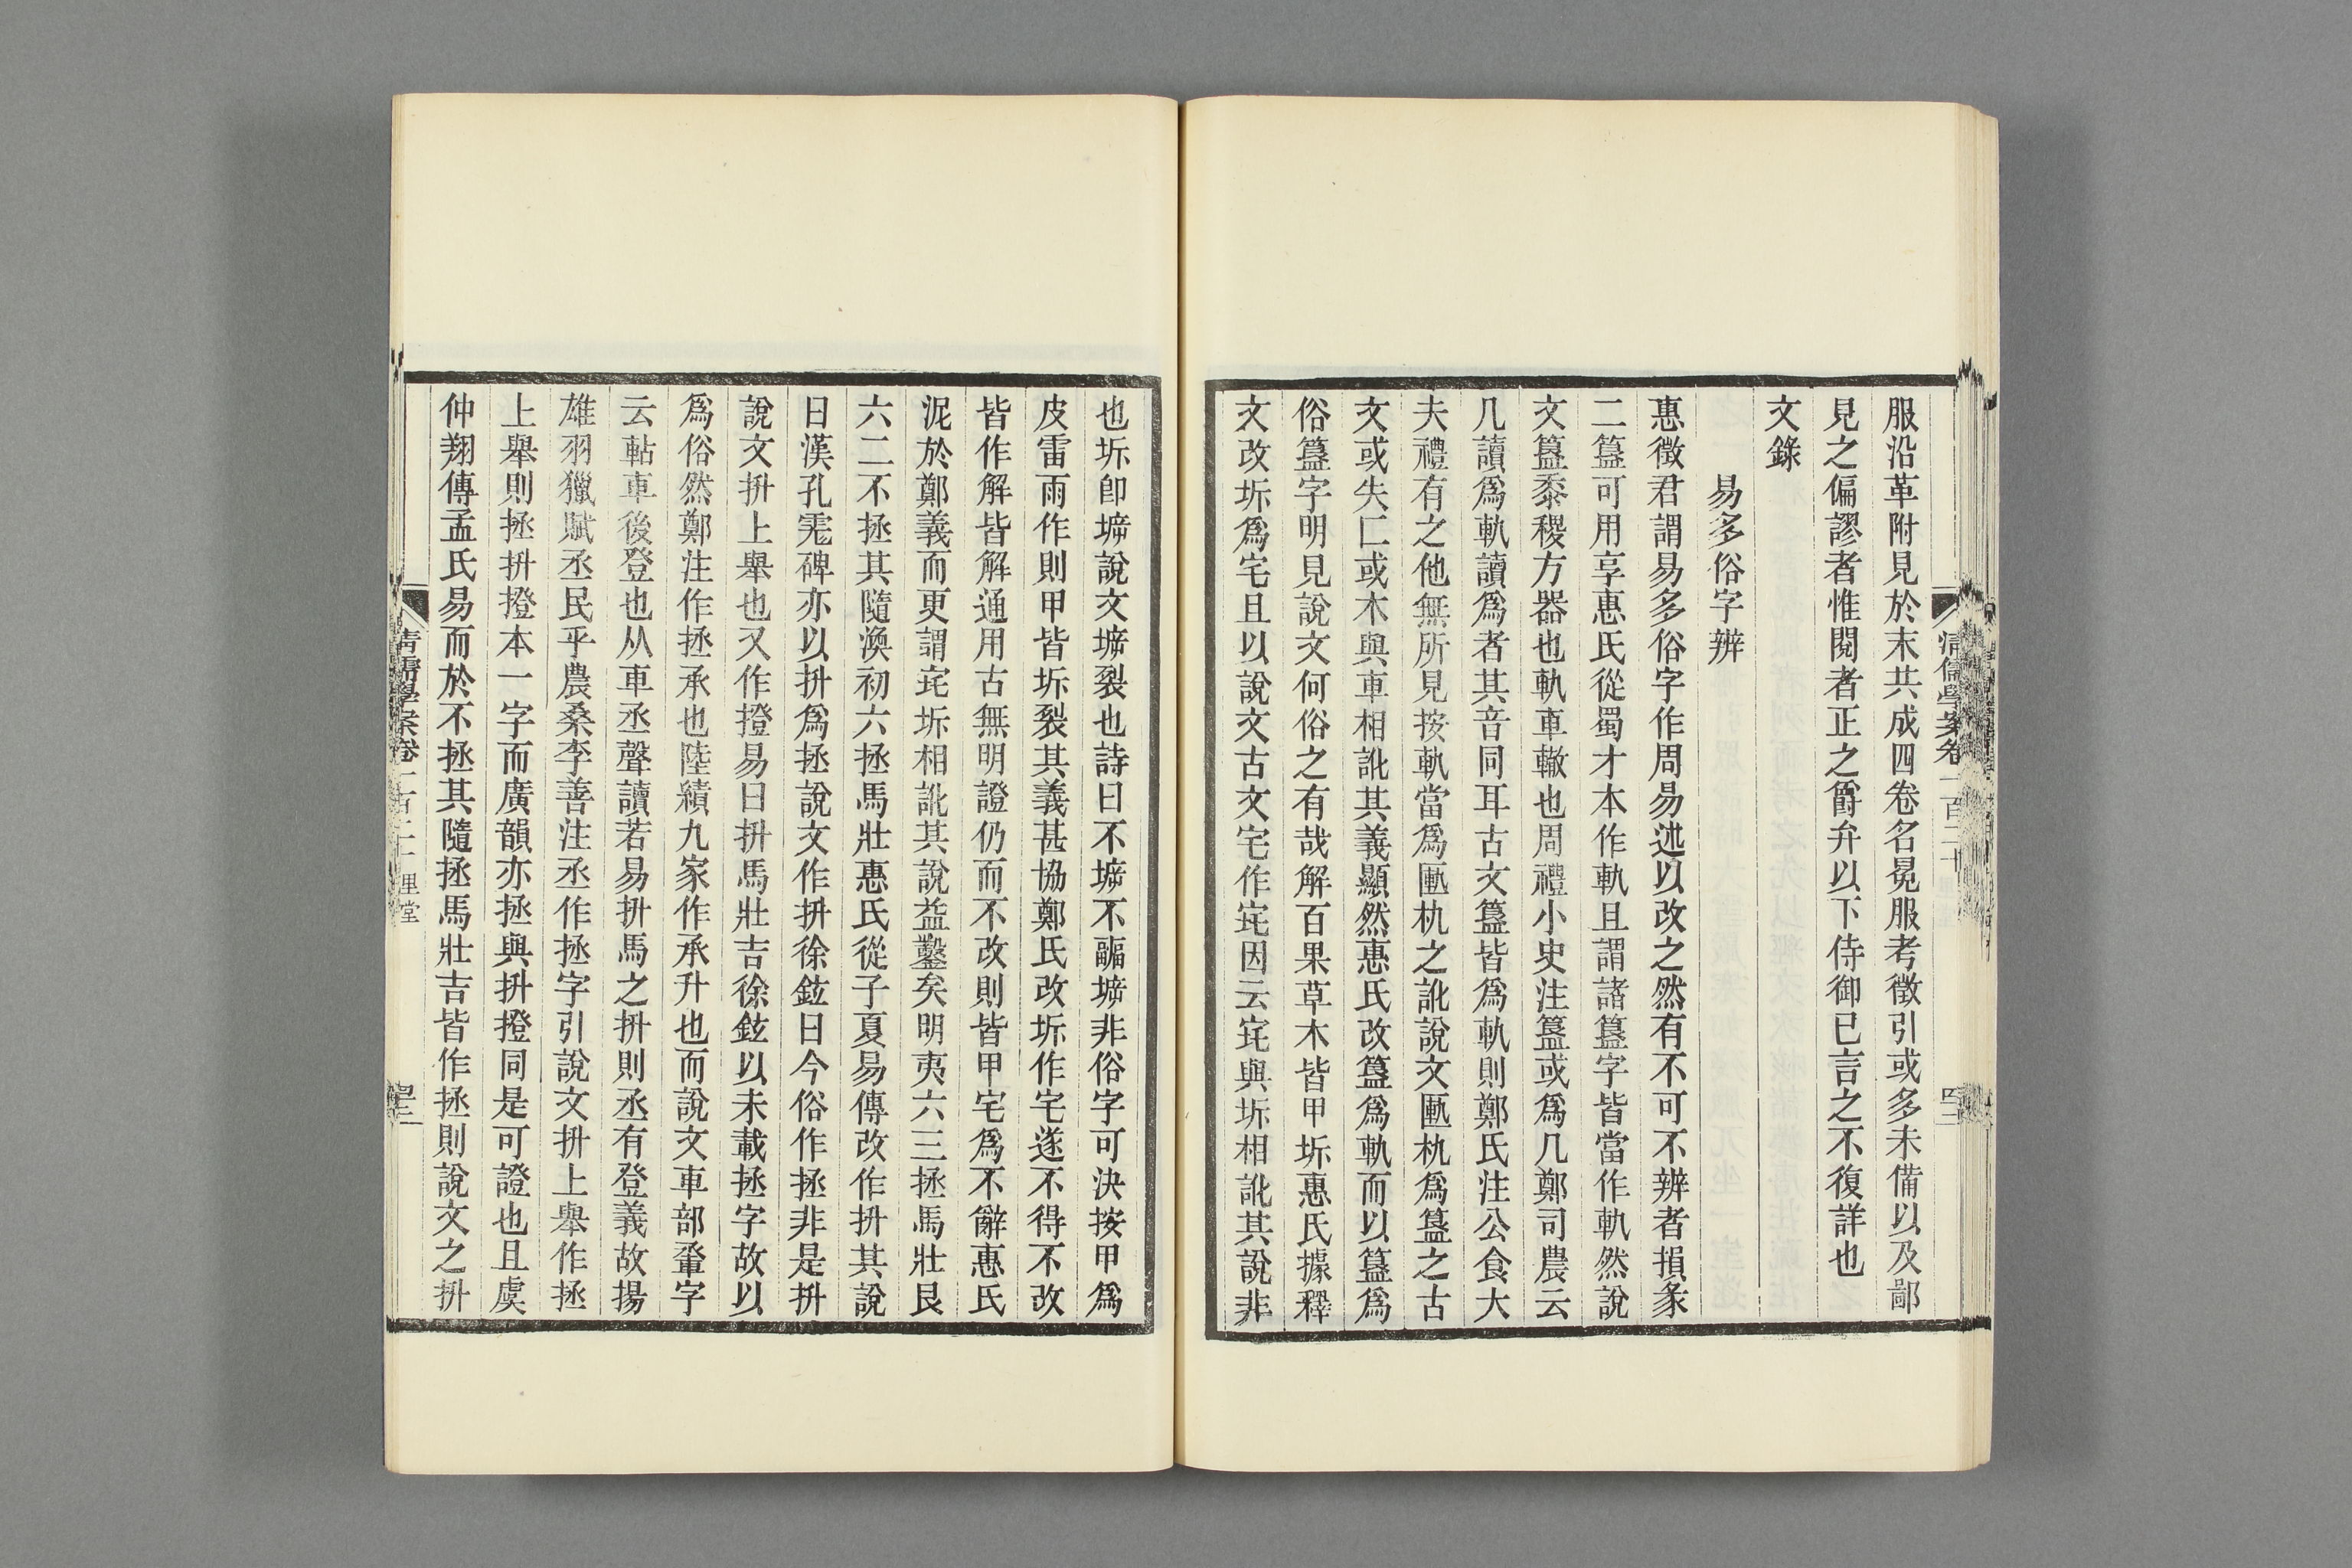 服沿革附見於末共成四卷名冕服考徵引或多未備以及鄙
見之偏謬者惟閱者正之爵弁以下侍御已言之不復詳也
文錄
易多俗字辨
惠徵君謂易多俗字作周易述以改之然有不可不辨者損彖
二簋可用享惠氏從蜀才本作軌且謂諸簋字皆當作軌然說
文簋黍稷方器也軌車轍也周禮小史注簋或爲几鄭司農云
几讀爲軌讀爲者其音同耳古文簋皆爲軌則鄭氏注公食大
夫禮有之他無所見按軌當爲匭朹之訛說文匭朹爲簋之古
文或失匚或木與車相訛其義顯然惠氏改簋爲軌而以簋爲
俗簋字明見說文何俗之有哉解百果草木皆甲坼惠氏據釋
文改坼爲宅且以說文古文宅作㡯因云㡯與坼相訛其說非
也坼卽㙤說文㙤裂也詩曰不㙤不疈㙤非俗字可決按甲爲
皮雷雨作則甲皆坼裂其義甚協鄭氏改坼作宅遂不得不改
皆作解皆解通用古無明證仍而不改則皆甲宅爲不辭惠氏
泥於鄭義而更謂㡯坼相訛其說益鑿矣明夷六三拯馬壯艮
六二不拯其隨渙初六拯馬壯惠氏從子夏易傳改作抍其說
曰漢孔宙碑亦以抍爲拯說文作抍徐鉉曰今俗作拯非是抍
說文抍上舉也又作撜易曰抍馬壯吉徐鉉以未載拯字故以
爲俗然鄭注作拯承也陸績九家作承升也而說文車部𨋬字
云軲車後登也从車丞聲讀若易抍馬之抍則丞有登義故揚
雄羽獵賦丞民乎農桑李善注丞作拯字引說文抍上舉作拯
上舉則拯抍撜本一字而廣韻亦拯與抍撜同是可證也且虞
仲翔傳孟氏易而於不拯其隨拯馬壯吉皆作拯則說文之抍
清儒學案卷一百二十
里堂